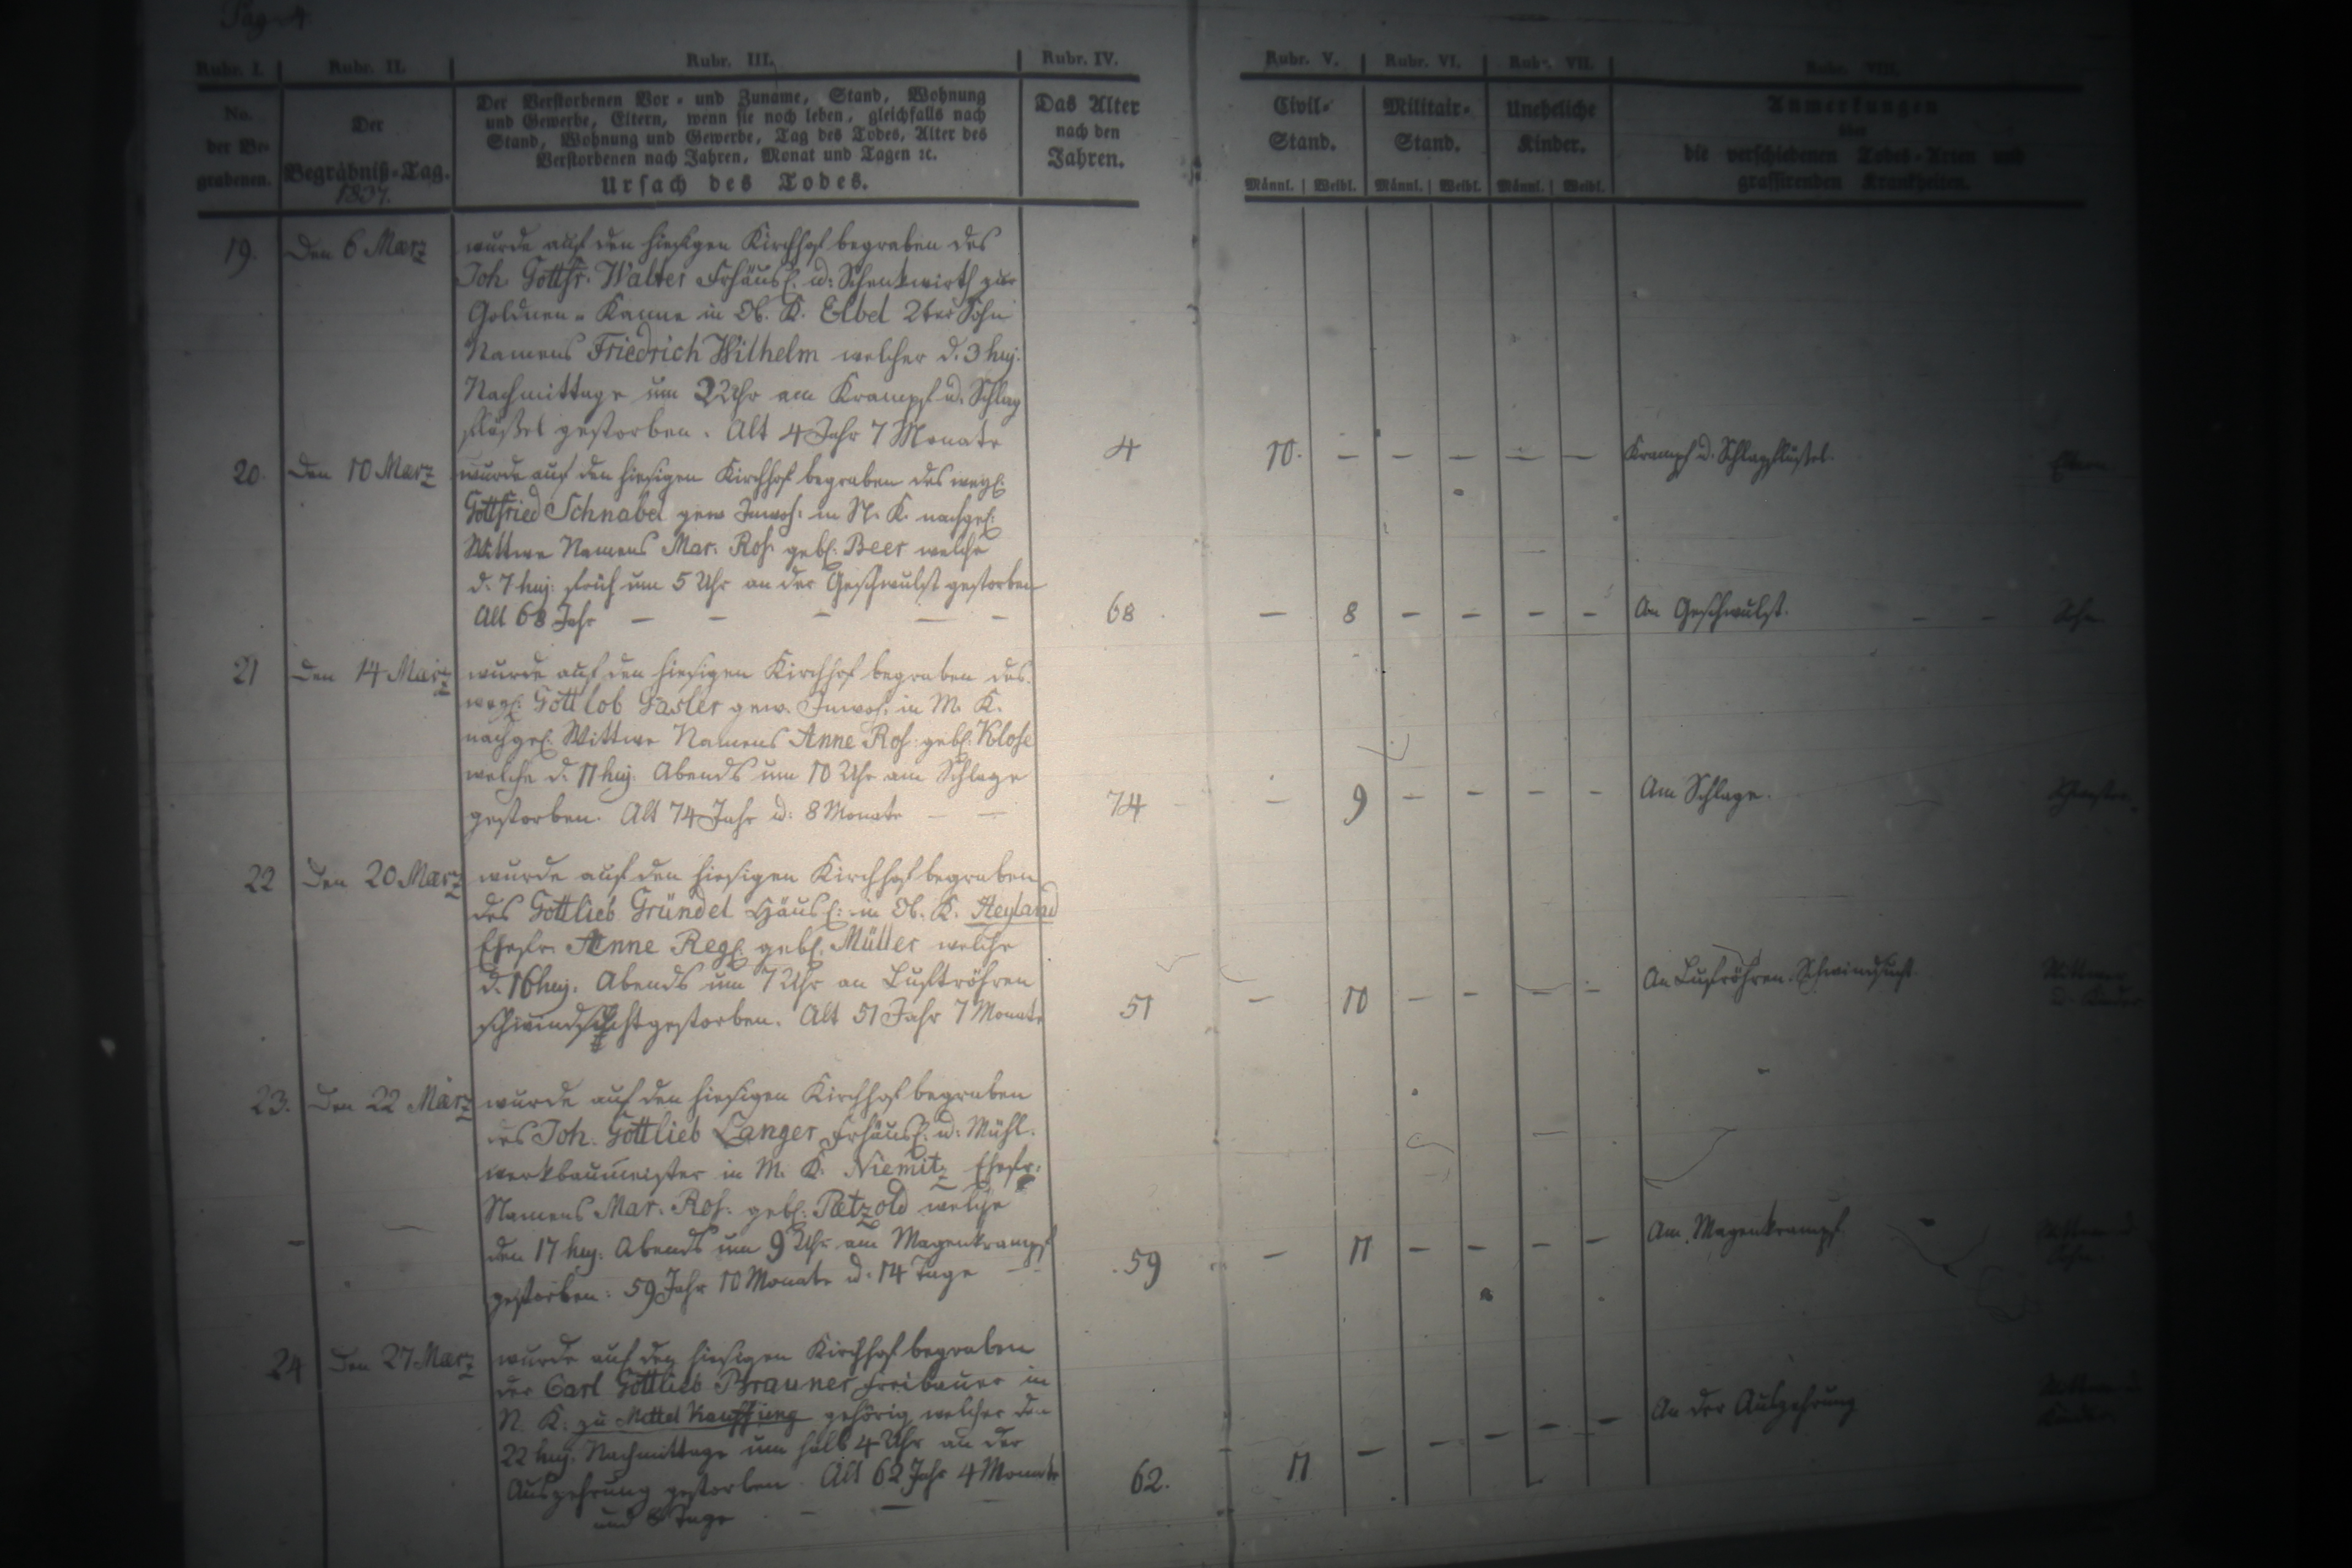 Pag. 4
Rubr. I. Rubr. II. Rubr. III. Rubr. IV. Rubr. V. Rubr. VI. Rubr. VII. Rubr. VIII.
No. der Be-grabenen.
Der Begräbniß-Tag.
1837.
Der Verstorbenen Vor- und Zuname, Stand, Wohnung
und Gewerbe, Eltern, wenn sie noch leben, gleichfalls nach
Stand, Wohnung und Gewerbe, Tag des Todes, Alter des
Verstorbenen nach Jahren, Monat und Tagen ꝛc.
Ursach des Todes.
Das Alter
nach den
Jahren.
Civil-
Stand.
Militair-
Stand.
Uneheliche
Kinder.
Männl. Weibl. Männl. Weibl. Männl. Weibl.
Anmerkungen
über
die verschiedenen Todes-Arten und
grassirenden Krankheiten.
19. Den 6 Marz wurde auf den hiesigen Kirchhof begraben des
Joh. Gottfr. Walter Frhäusl. u: Schenkwirth zur
Goldnen-Kanne in Ob. K. Elbel 2ter Sohn
Namens Friedrich Wilhelm welcher d. 3 huj.
Nachmittags um 2 Uhr am Krampf u. Schlag
flüßel gestorben. Alt 4 Jahr 7 Monate 4 10. – – – – – Krampf u. Schlagflüßel. Eltern
20. Den 10 Marz wurde auf den hiesigen Kirchhof begraben des weyl:
Gottfried Schnabel gew. Inwoh: in N. K. nachgel:
Wittwe Namens Mar. Ros. gebl: Beer welche
d. 7 huj: früh um 5 Uhr an der Geschwulst gestorben
Alt 68 Jahr – – – – – 68 – 8 – – – – An Geschwulst. – –
21 Den 14 Marz wurde auf den hiesigen Kirchhof begraben des
weyl: Gottlob gew. Inwoh: in M. K.
nachgel. Wittwe Namens Anne Ros: gebl. Klose
welche d. 11 huj. Abends um 10 Uhr am Schlage
gestorben. Alt 74 Jahr u: 8 Monate – – 74 – 9 – – – – Am Schlage.
22 Den 20 Marz wurde auf den hiesigen Kirchhof begraben
des Gottlieb Gründel Häusl: in Ob. K. Heyland
Ehefr. Anne Regl: gebl. Müller welche
d. 16 huj. Abends um 7 Uhr an Luftröhren
schwindsucht gestorben. Alt 51 Jahr 7 Monate 51 – 10 – – – – An Luftröhren Schwindsucht.
23. Den 22 Marz wurde auf den hiesigen Kirchhof begraben
des Joh. Gottlieb Langer Frhäusl: u: Mühl-
werkbaumeister in M. K. Niemitz Ehefr:
Namens Mar. Ros: gebl: Pätzold welche
den 17 huj. Abends um 9 Uhr am Magenkrampf
gestorben: 59 Jahr 10 Monate u: 14 Tage – 59 – 11 – – – – Am Magenkrampf –
24 Den 27 Marz wurde auf den hiesigen Kirchhof begraben
der Carl Gottlieb Brauner Freibauer in
N. K: zu Mittel Kauffung gehörig welcher den
22 huj. Nachmittags um halb 4 Uhr an der
Auszehrung gestorben. Alt 62 Jahr 4 Monate
und 8 Tage – – – 62. 11 – – – – – An der Auszehrung